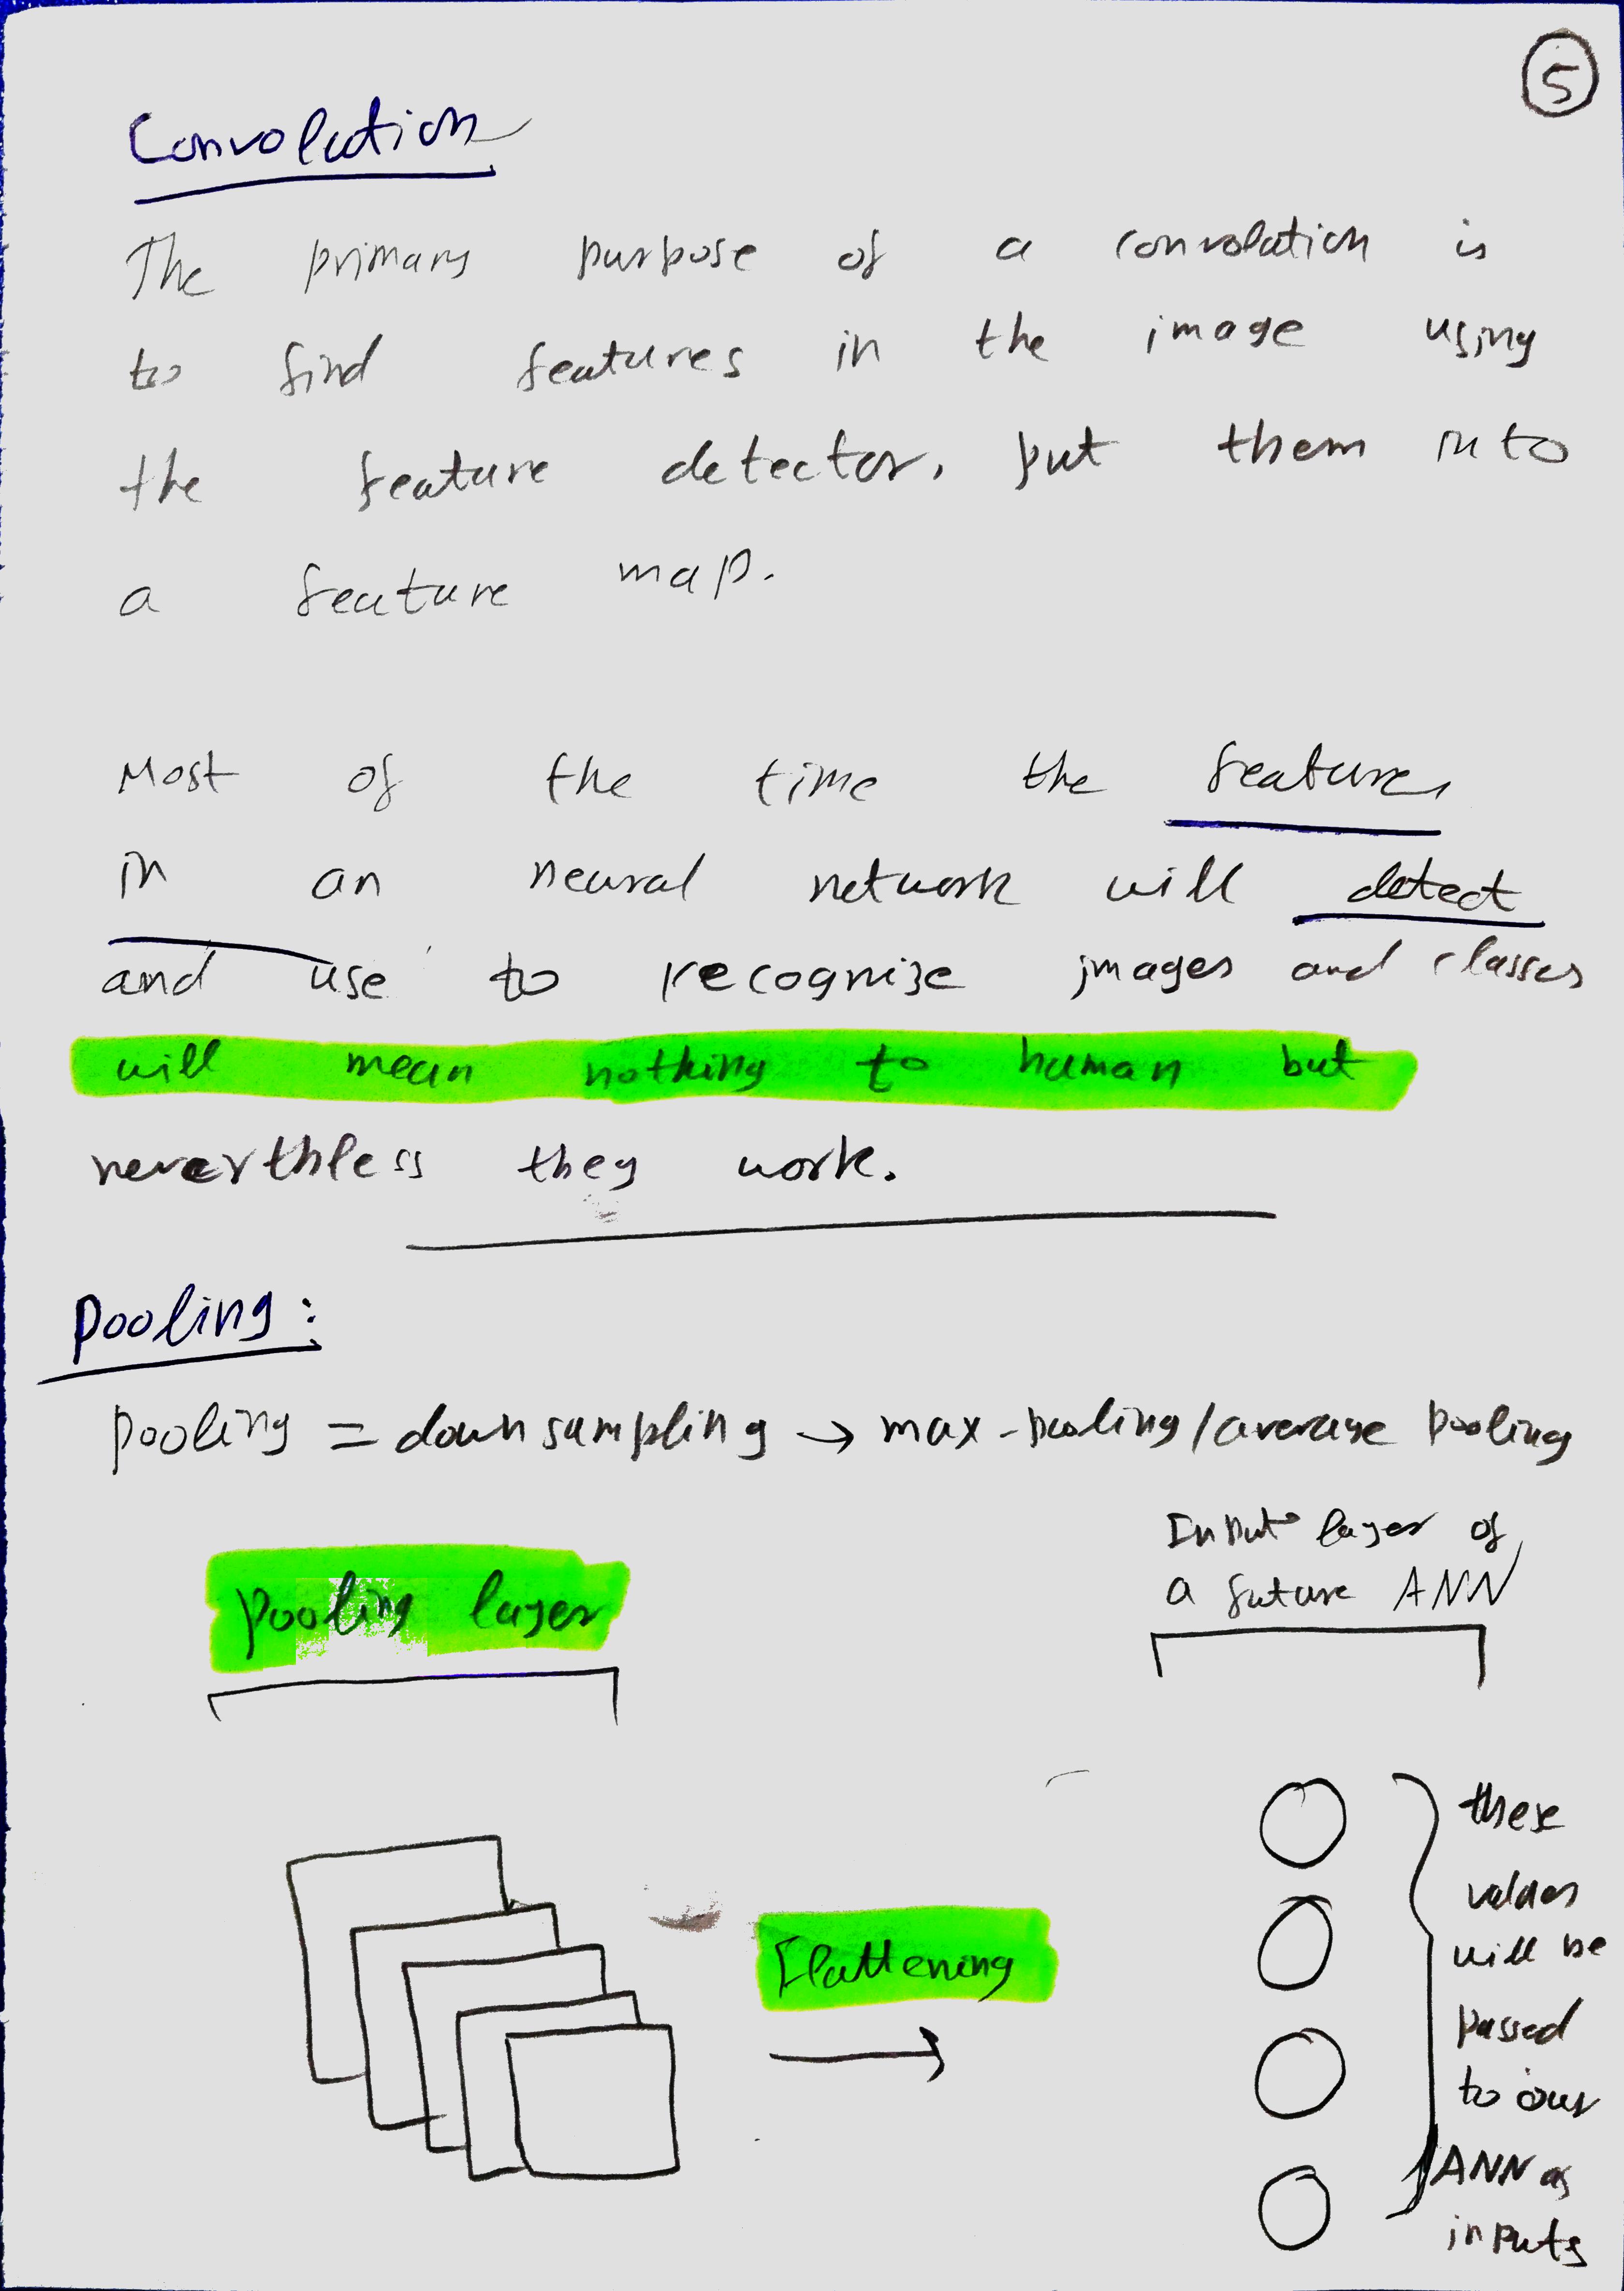 5
Convolution
The primary purpose of a convolution is
to find features in the image using
the feature detector, put them into
a feature map.
Most of the time the features
in an neural network will detect
and use to recognise images and classes
will mean nothing to human but
neverthless they work.
Pooling:
pooling = down sampling → max-pooling/average pooling
Input layer of
a future ANN
pooling layer
these
values
will be
passed
to our
ANN as
inputs
Flattening